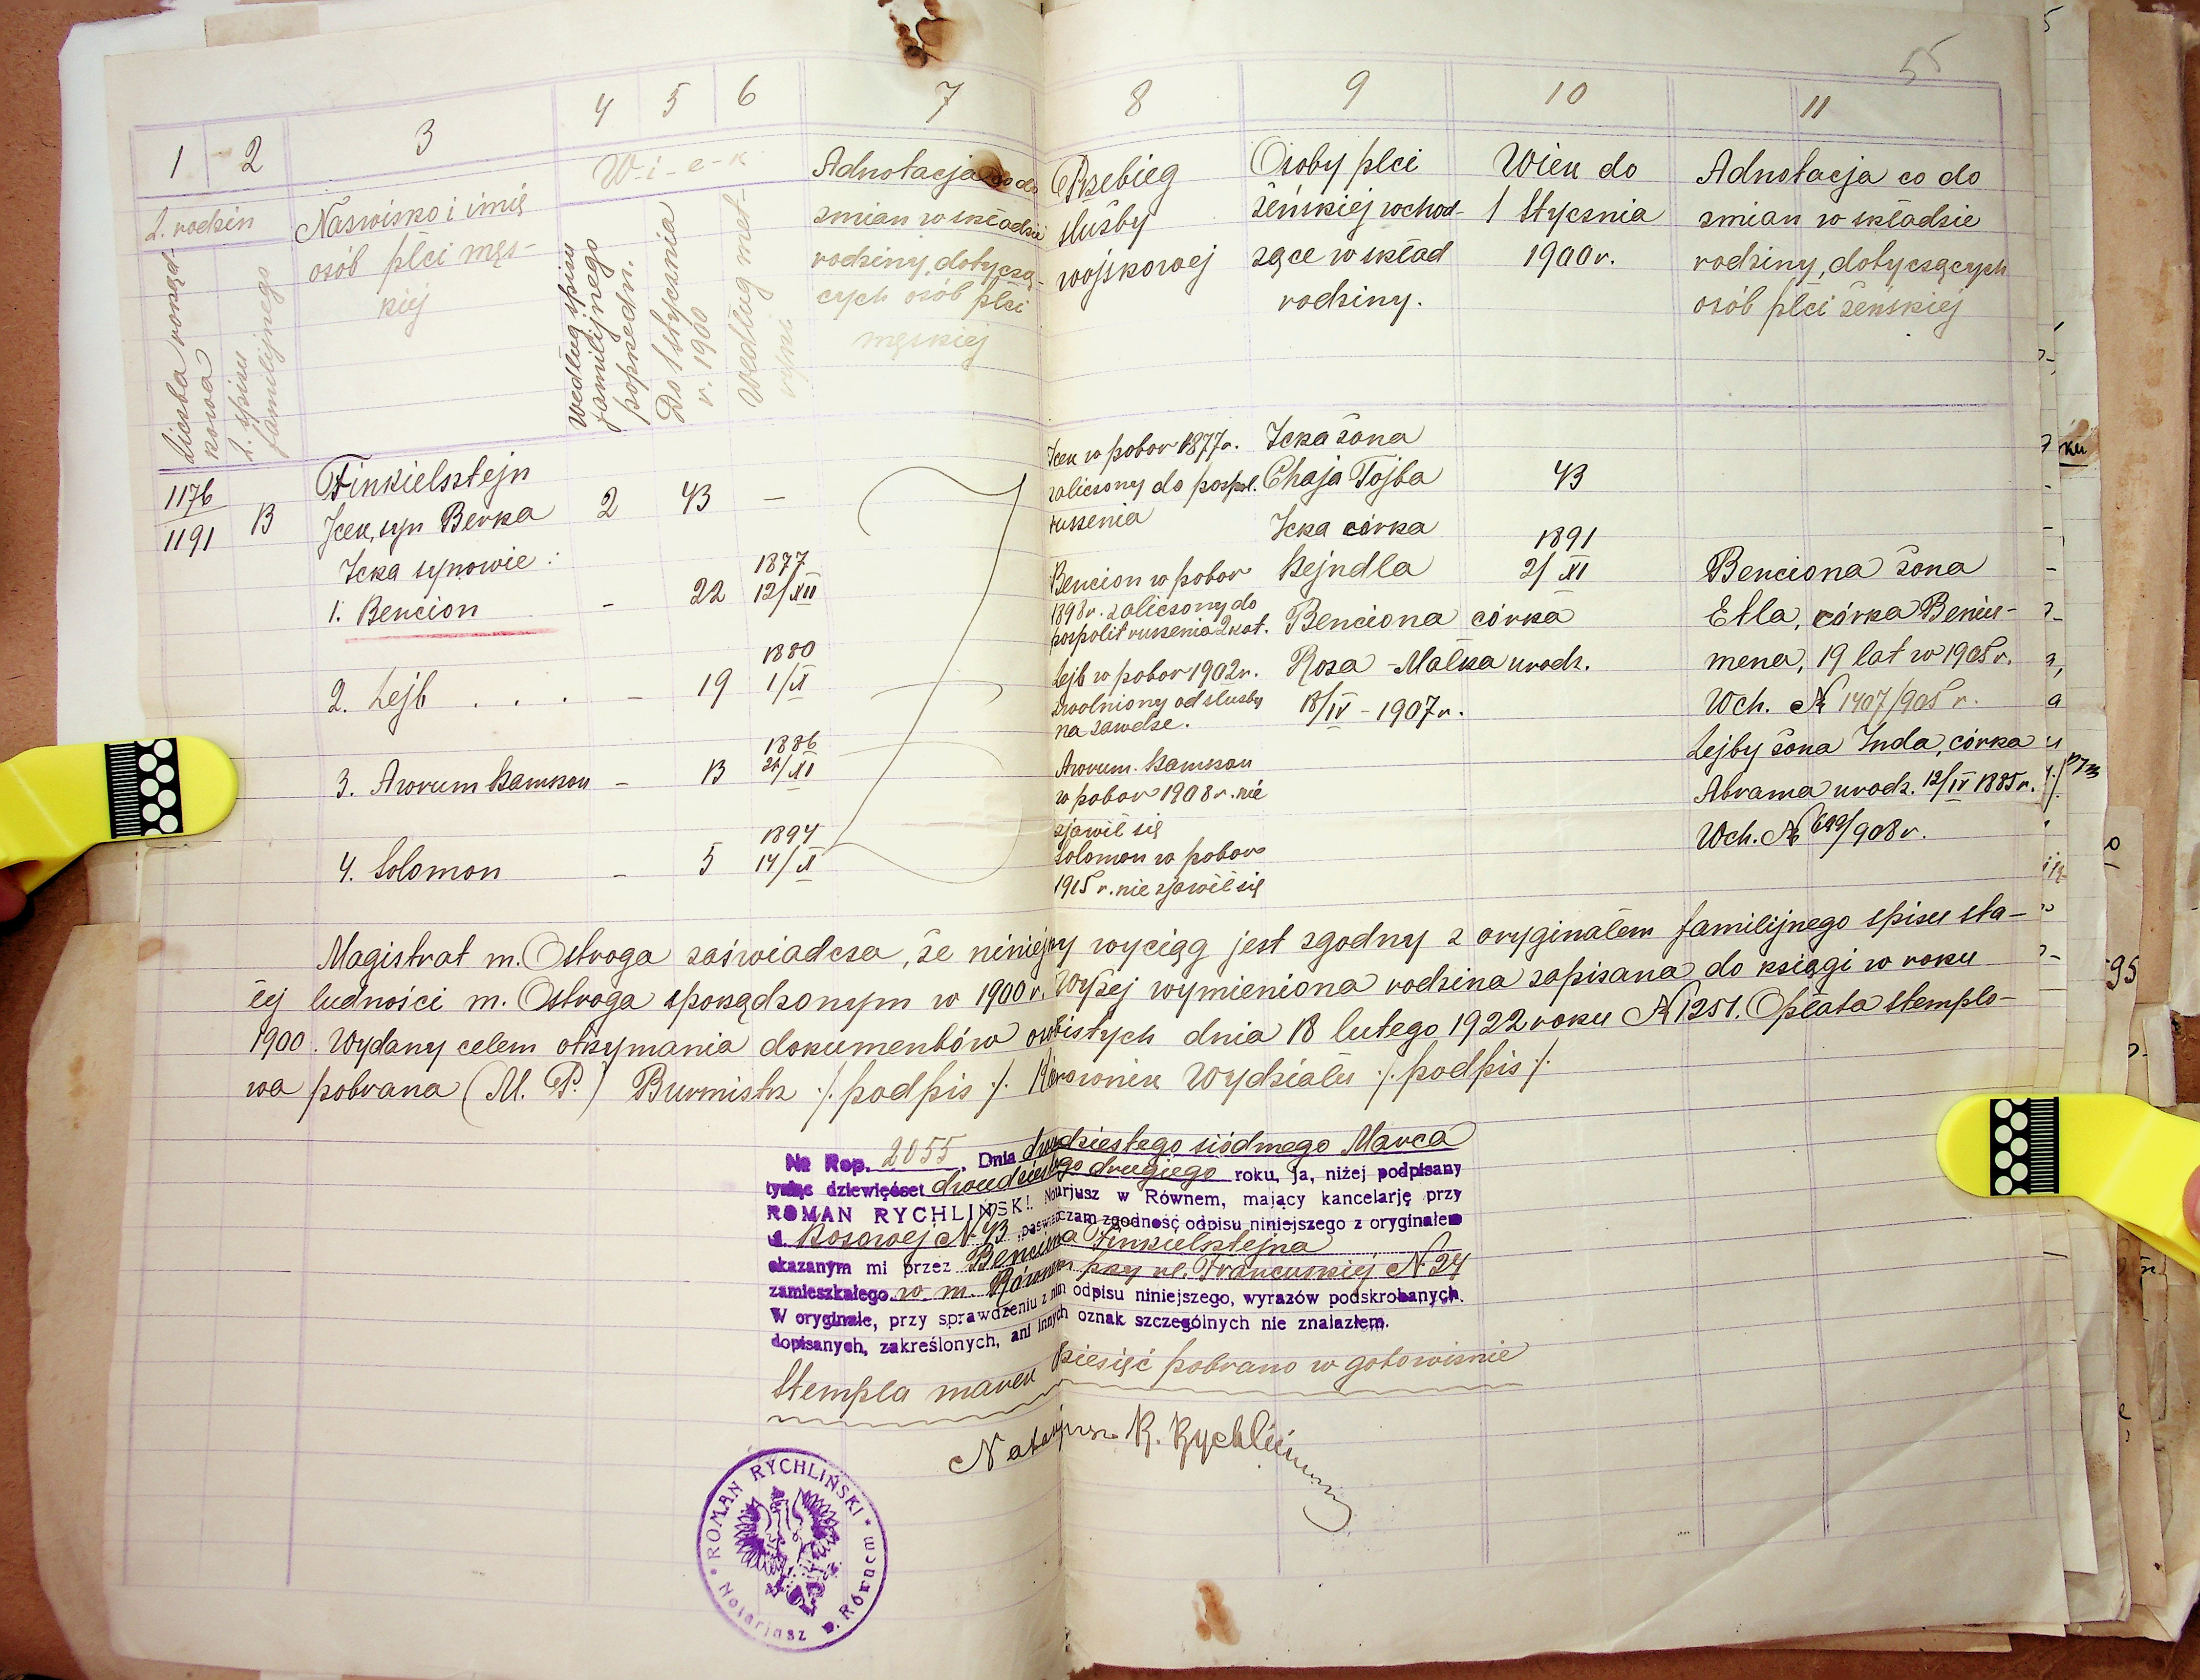 55
1 2 3 4 5 6 7 8 9 10 11
L. rodzin
Liczba porządkowa
L. spisu familijnego
Nazwisko i imię
osób płci męs-
kiej
W-i-e-k
Według spisu
familijnego
poprzedn.
Do 1 stycznia
r. 1900
Według met-
ryki
Adnotacja co do
zmian w składzie
rodziny, dotyczą-
cych osób płci
męskiej
Przebieg
służby
wojskowej
Osoby płci
żeńskiej wchod-
zące w skład
rodziny.
Wiek do
1 Stycznia
1900 r.
Adnotacja co do
zmian w składzie
rodziny, dotyczących
osób płci żeńskiej
1176
1191
13
Finkielsztejn
Icek, syn Berka
2
43
—
Icka synowie:
1. Bencion
-
22
1877
12/XII
2. Lejb . . .
-
19
1880
1/XI
3. Awrum Kamson
-
13
1886
XI
4. Solomon
-
5
1894
14/XI
Icek w pobor 1877 r.
zaliczony do pospol.
ruszenia
Bencion w pobor
1898 r. zaliczony do
pospolit ruszenia 2 kat.
Lejb w pobor 1902 r.
zwolniony od służby
na zawsze.
Awrum. Kamson
w pobor 1908 r. nie
zjawił się
Solomon w pobor
1915 r. nie zjawił się
Icka żona
Chaja Tojba
43
Icka córka
Rejndla
1891
2/XI
Benciona córka
Roza-Malka urodz.
18/IV - 1907 r.
Benciona żona
Etla, córka Benius-
mena, 19 lat w 1905 r.
Wch. № 1407/905 r.
Lejby żona Inda, córka
Abrama urodz. 12/IV 1885 r.
Wch. № 699/908 r.
Magistrat m. Ostroga zaświadcza, że niniejszy wyciąg jest zgodny z oryginałem familijnego spisu sta-
łej ludności m. Ostroga sporządzonym w 1900 r. Wyżej wymieniona rodzina zapisana do księgi w roku
1900. Wydany celem otrzymania dokumentów osobistych dnia 18 lutego 1922 roku № 1251. Opłata stemplo-
wa pobrana (M. P.) Burmistrz /podpis/. Kierownik Wydziału /podpis/
№ Rep. 2055. Dnia dwudziestego siódmego Marca
tysiąc dziewięćset dwudziestego drugiego roku, ja, niżej podpisany
ROMAN RYCHLIŃSKI, Notarjusz w Równem, mający kancelarję przy
ul. Szosowej № 43 poświadczam zgodność odpisu niniejszego z oryginałem
okazanym mi przez Benciona Finkielsztejna
zamieszkałego w m. Równem przy ul. Francuskiej № 24
W oryginale, przy sprawdzeniu z nim odpisu niniejszego, wyrazów podskrobanych,
dopisanych, zakreślonych, ani innych oznak szczególnych nie znalazłem.
Stempla marek dziesięć pobrano w gotowiznie
Notarjusz R. Rychliński
ROMAN RYCHLIŃSKI
Notarjusz w Równem